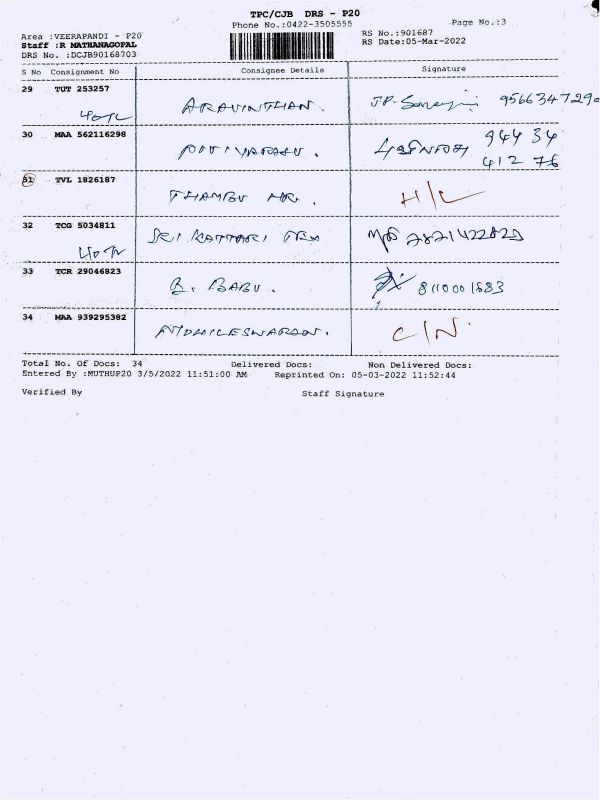 TPC/CJB DRS - P20
Phone No.:0422-3505555
Page No.:3
Area :VEERAPANDI - P20
Staff :R MATHANAGOPAL
DRS No. :DCJB90168703
RS No.:901687
RS Date:05-Mar-2022
S No Consignment No Consignee Details Signature
29 TUT 253257
ARAVINTHAN. J.P. 9566347290
30 MAA 562116298
944 34
412 76
31 TVL 1826187
THAMBU H/L
32 TCG 5034811
SRI
33 TCR 29046823
R. BABU. 8110001683
34 MAA 939295382
C/N.
Total No. Of Docs: 34 Delivered Docs: Non Delivered Docs:
Entered By :MUTHUP20 3/5/2022 11:51:00 AM Reprinted On: 05-03-2022 11:52:44
Verified By Staff Signature